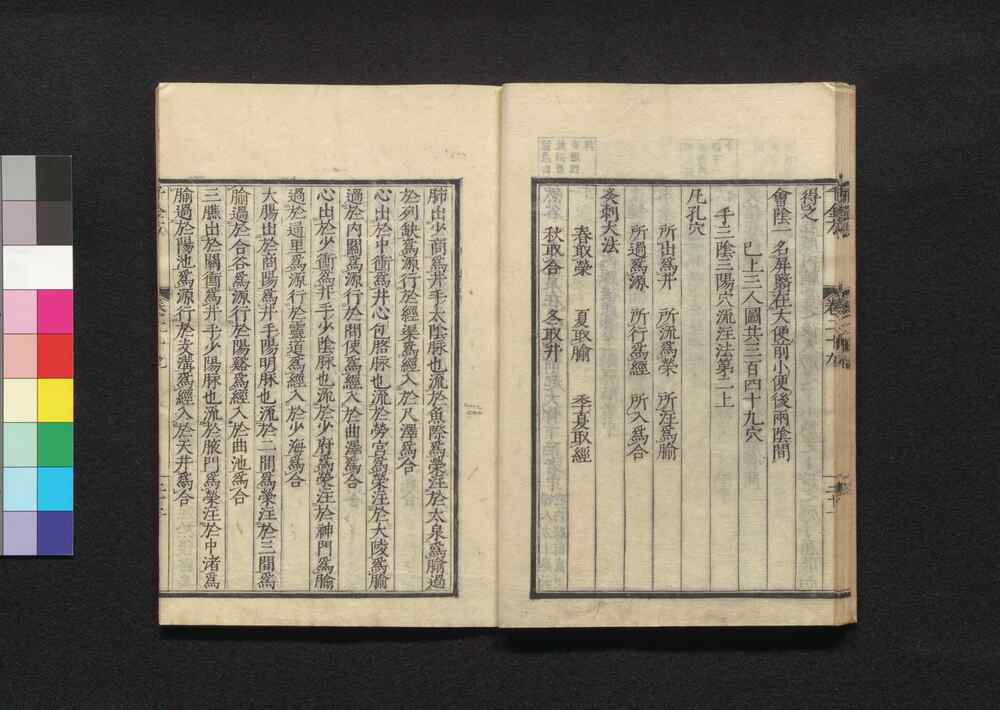 得之
會陰一名屏翳在大便前小便後兩陰間
已上三人圖共三百四十九穴
手三陰三陽穴流注法第二上
凡孔穴
所出爲井　所流爲滎　所注爲腧
所過爲源　所行爲經　所入爲合
灸刺大法
春取滎　夏取腧　季夏取經
秋取合　冬取井
肺出少商爲井手太陰脉也流於魚際爲滎注於太泉爲腧過
於列缺爲源行於經渠爲經入於尺澤爲合
心出於中衝爲井心包胳脉也流於勞宮爲滎注於大陵爲腧
過於內關爲源行於間使爲經入於曲澤爲合
心出於少衝爲井手少陰脉也流於少府爲滎注於神門爲腧
過於通里爲源行於靈道爲經入於少海爲合
大腸出於商陽爲井手陽明脉也流於二間爲滎注於三間爲
腧過於合谷爲源行於陽谿爲經入於曲池爲合
三膲出於關衝爲井手少陽脉也流於腋門爲滎注於中渚爲
腧過於陽池爲源行於支溝爲經入於天井爲合